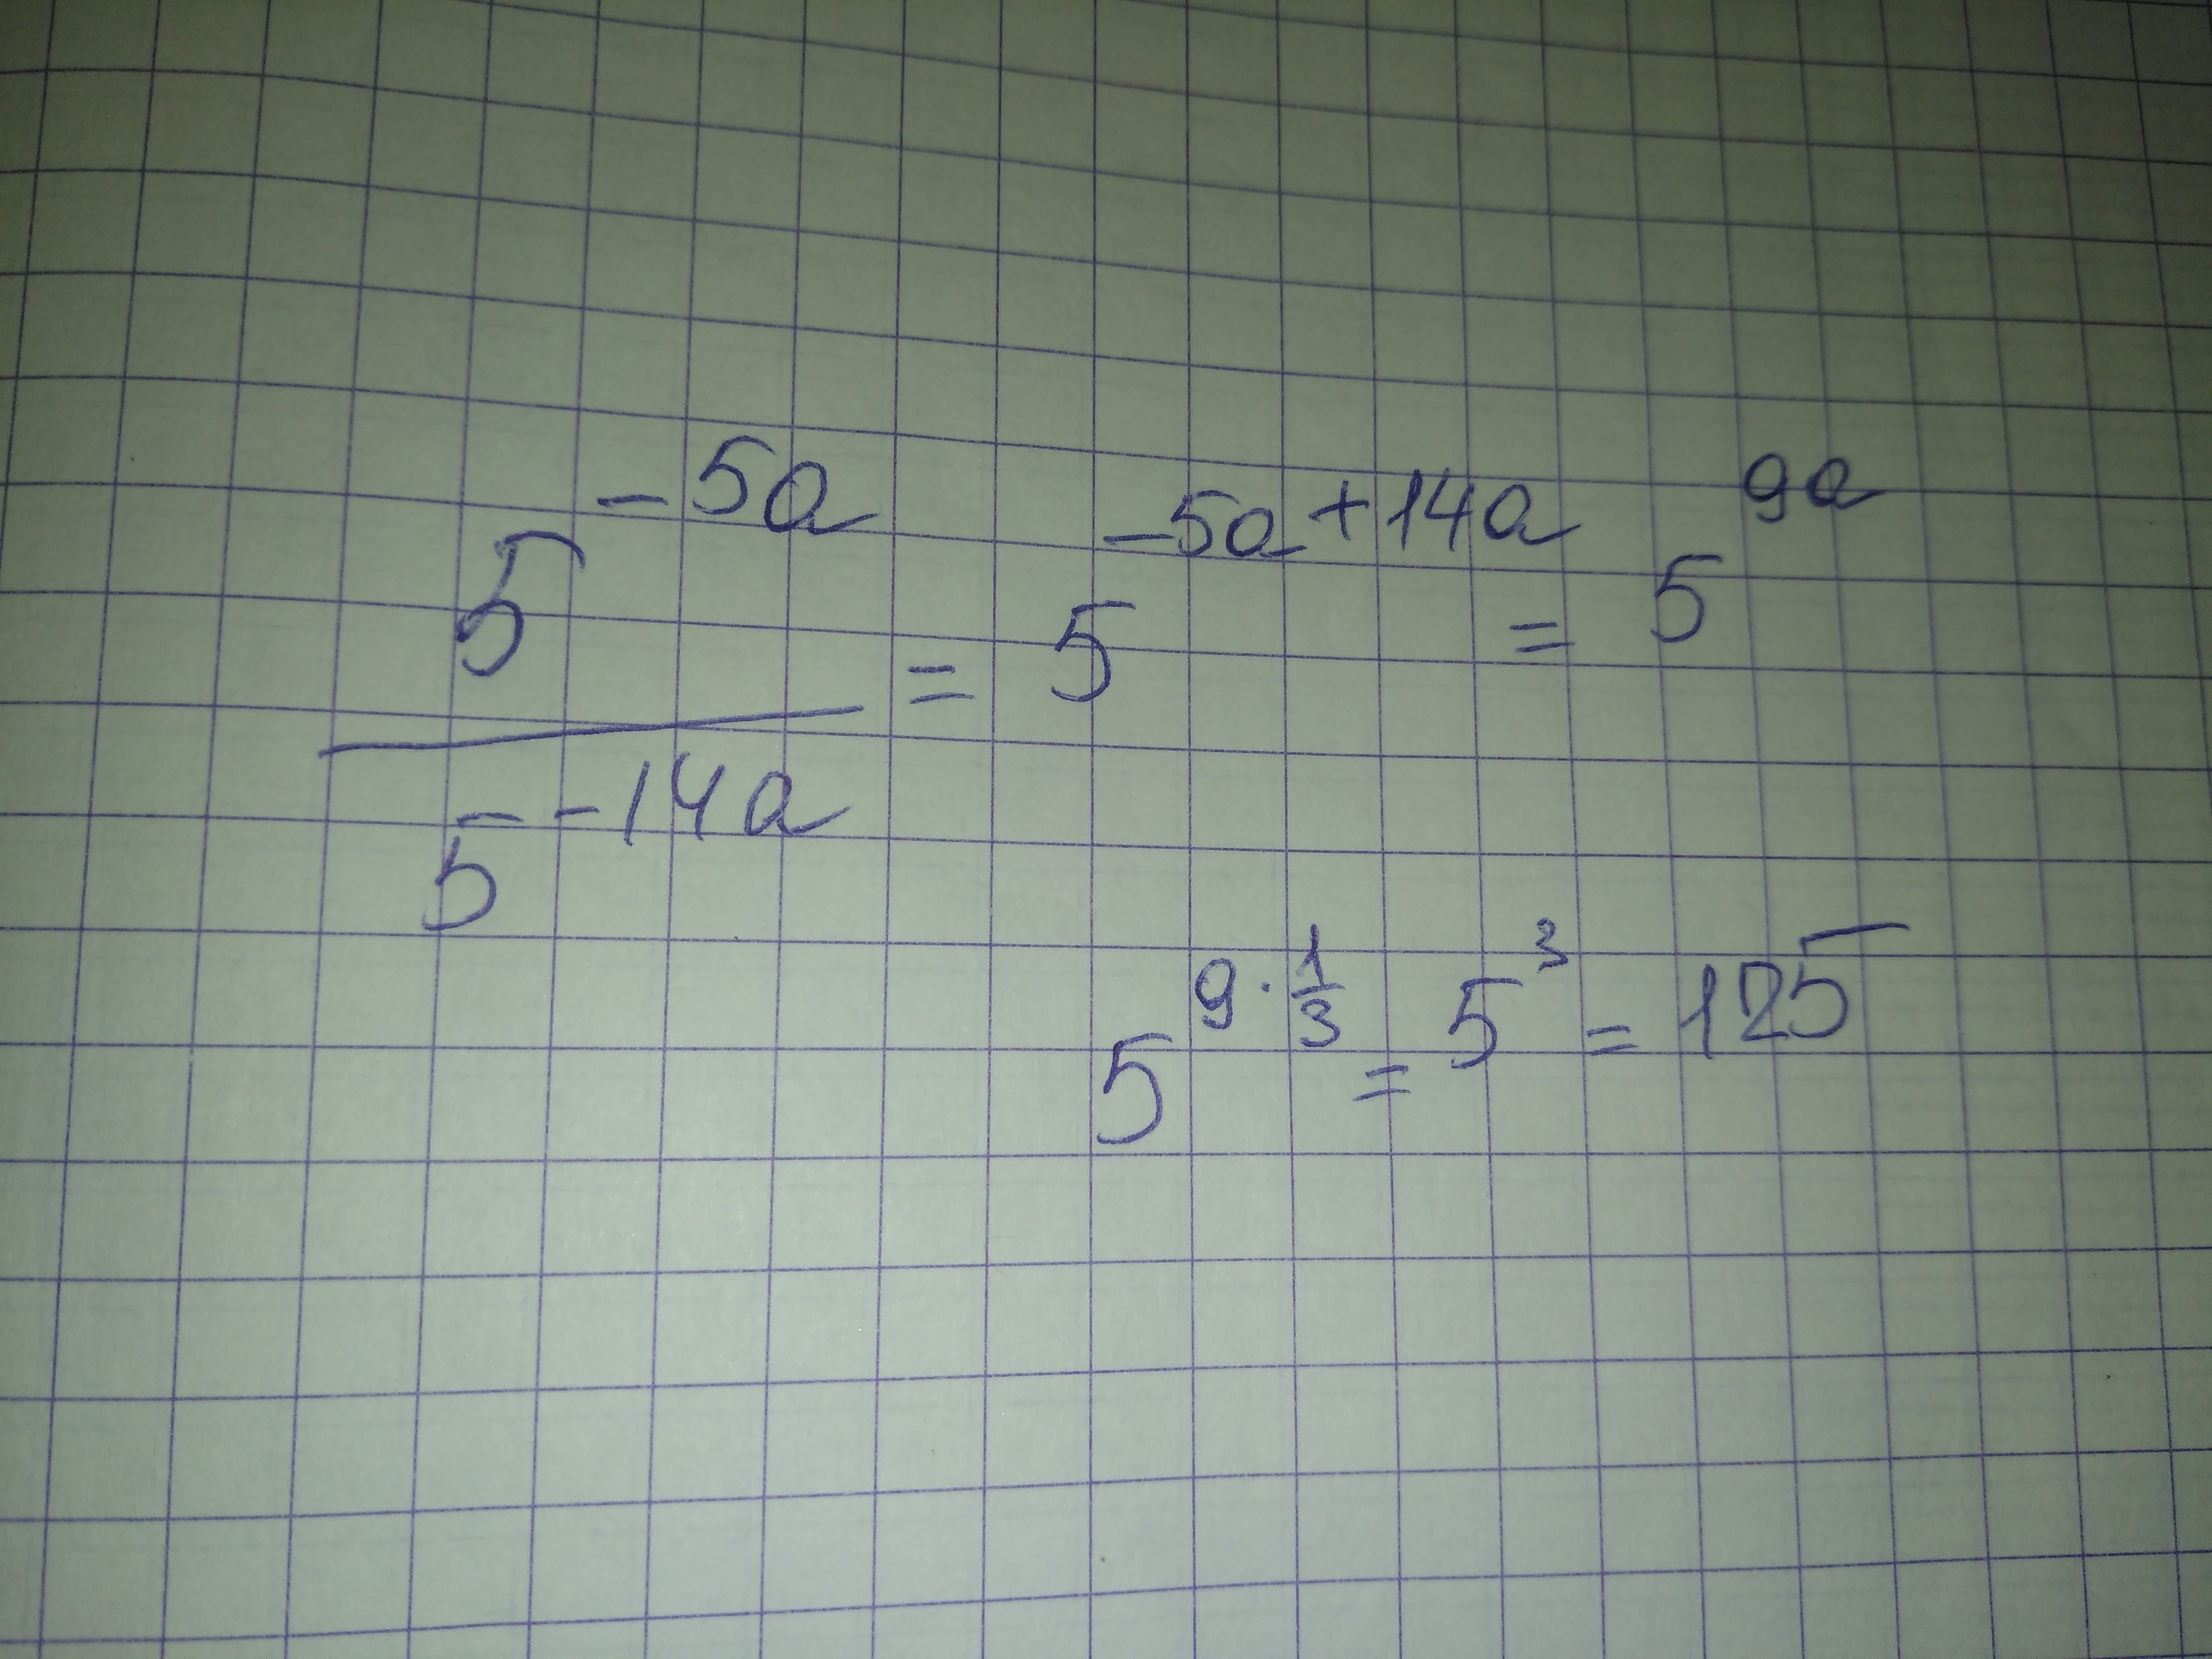 5^{-5a} / 5^{-14a} = 5^{-5a+14a} = 5^{9a}
5^{9·1/3} = 5^3 = 125